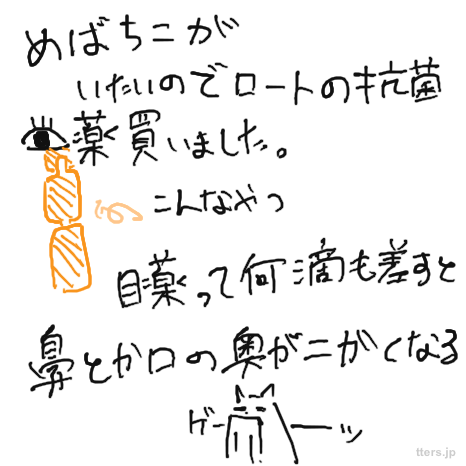 めばちこが
いたいのでロートの抗菌
目薬買いました。
こんなやつ
目薬って何滴も差すと
鼻とか口の奥がニがくなる
ゲーーッ
tters.jp